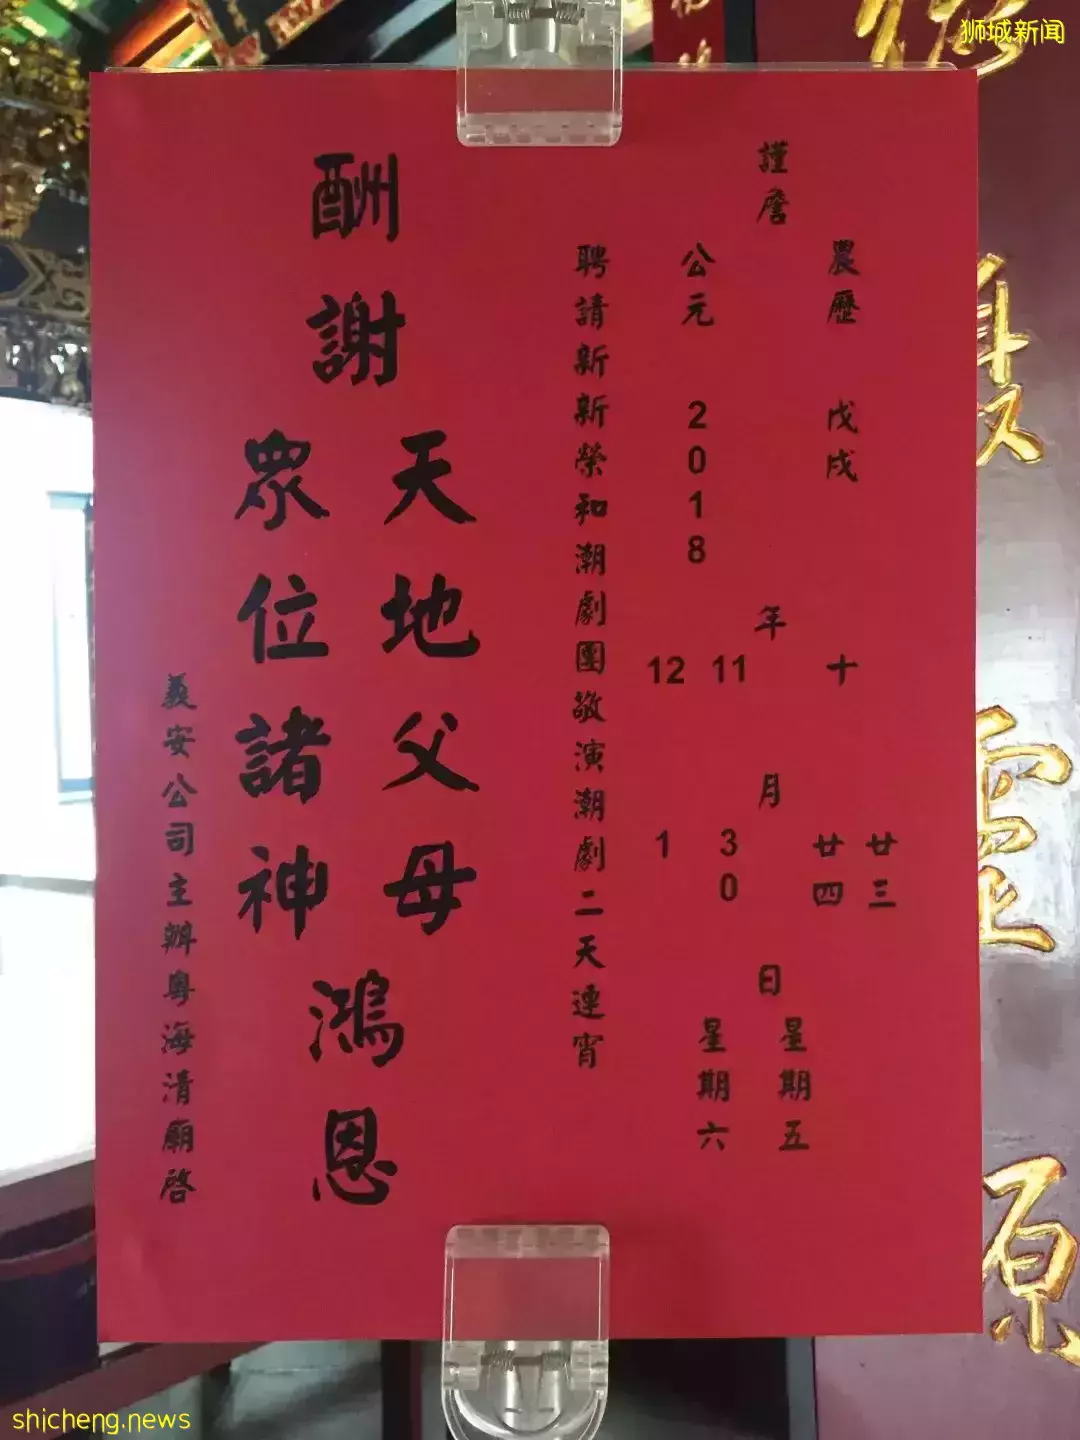 狮城新闻
謹詹
農歷 戊戌 十 廿三 廿四
年 月 日
公元 2018 11 30 星期五
12 1 星期六
聘請新新榮和潮劇團敬演潮劇二天連宵
酬謝
天地父母
眾位諸神
鴻恩
義安公司主辦粵海清廟啓
靈
原
shicheng.news